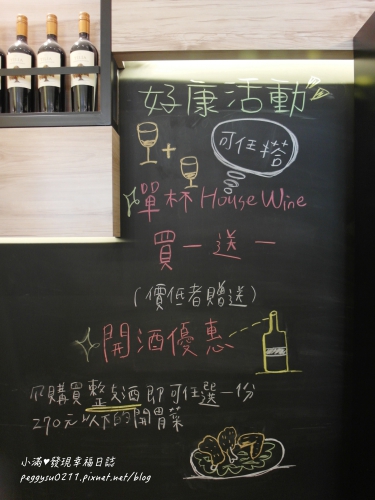 好康活動
可任搭
單杯 House Wine
買一送一
(價低者贈送)
開酒優惠
凡購買整支酒即可任選一份
270元以下的開胃菜
小滿♥發現幸福日誌
peggysu0211.pixnet.net/blog